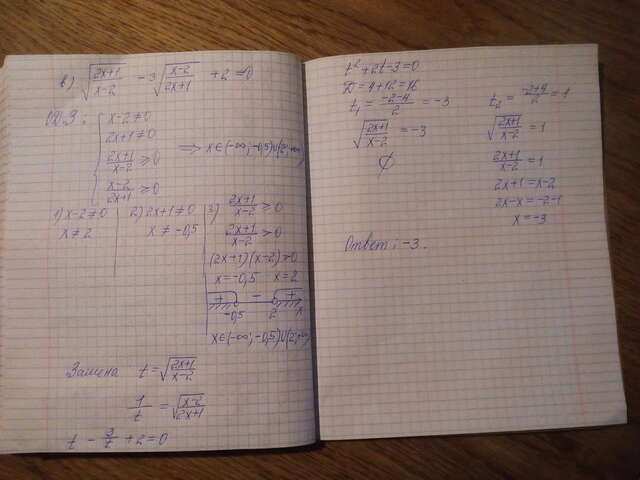 в) √((2x+1)/(x-2)) - 3√((x-2)/(2x+1)) + 2 = 0
ОДЗ: { x-2≠0
2x+1≠0
(2x+1)/(x-2) ≥ 0 ⇒ x∈(-∞; -0,5)∪(2; +∞)
(x-2)/(2x+1) ≥ 0
1) x-2≠0 2) 2x+1≠0 3) (2x+1)/(x-2) ≥ 0
x≠2 x≠-0,5 (2x+1)/(x-2) > 0
(2x+1)(x-2)>0
x=-0,5 x=2
+ - +
-0,5 2 x
x∈(-∞; -0,5)∪(2; +∞)
Замена t = √((2x+1)/(x-2))
1/t = √((x-2)/(2x+1))
t - 3/t + 2 = 0
t² + 2t - 3 = 0
D = 4+12 = 16
t₁ = (-2-4)/2 = -3 t₂ = (-2+4)/2 = 1
√((2x+1)/(x-2)) = -3 √((2x+1)/(x-2)) = 1
∅ (2x+1)/(x-2) = 1
2x+1 = x-2
2x-x = -2-1
x = -3
Ответ: -3.